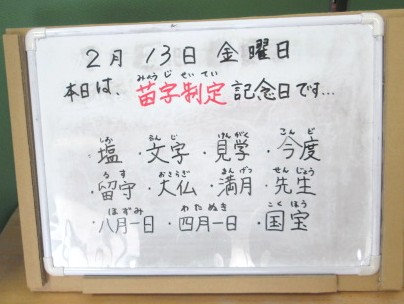 2月 13日 金曜日
みょうじせいてい
本日は、苗字制定記念日です…
しお もんじ けんがく こんど
塩・文字・見学・今度
るす おさらぎ まんげつ せんじょう
・留守・大仏・満月・先生
ほずみ わたぬき こくほう
・八月一日・四月一日・国宝